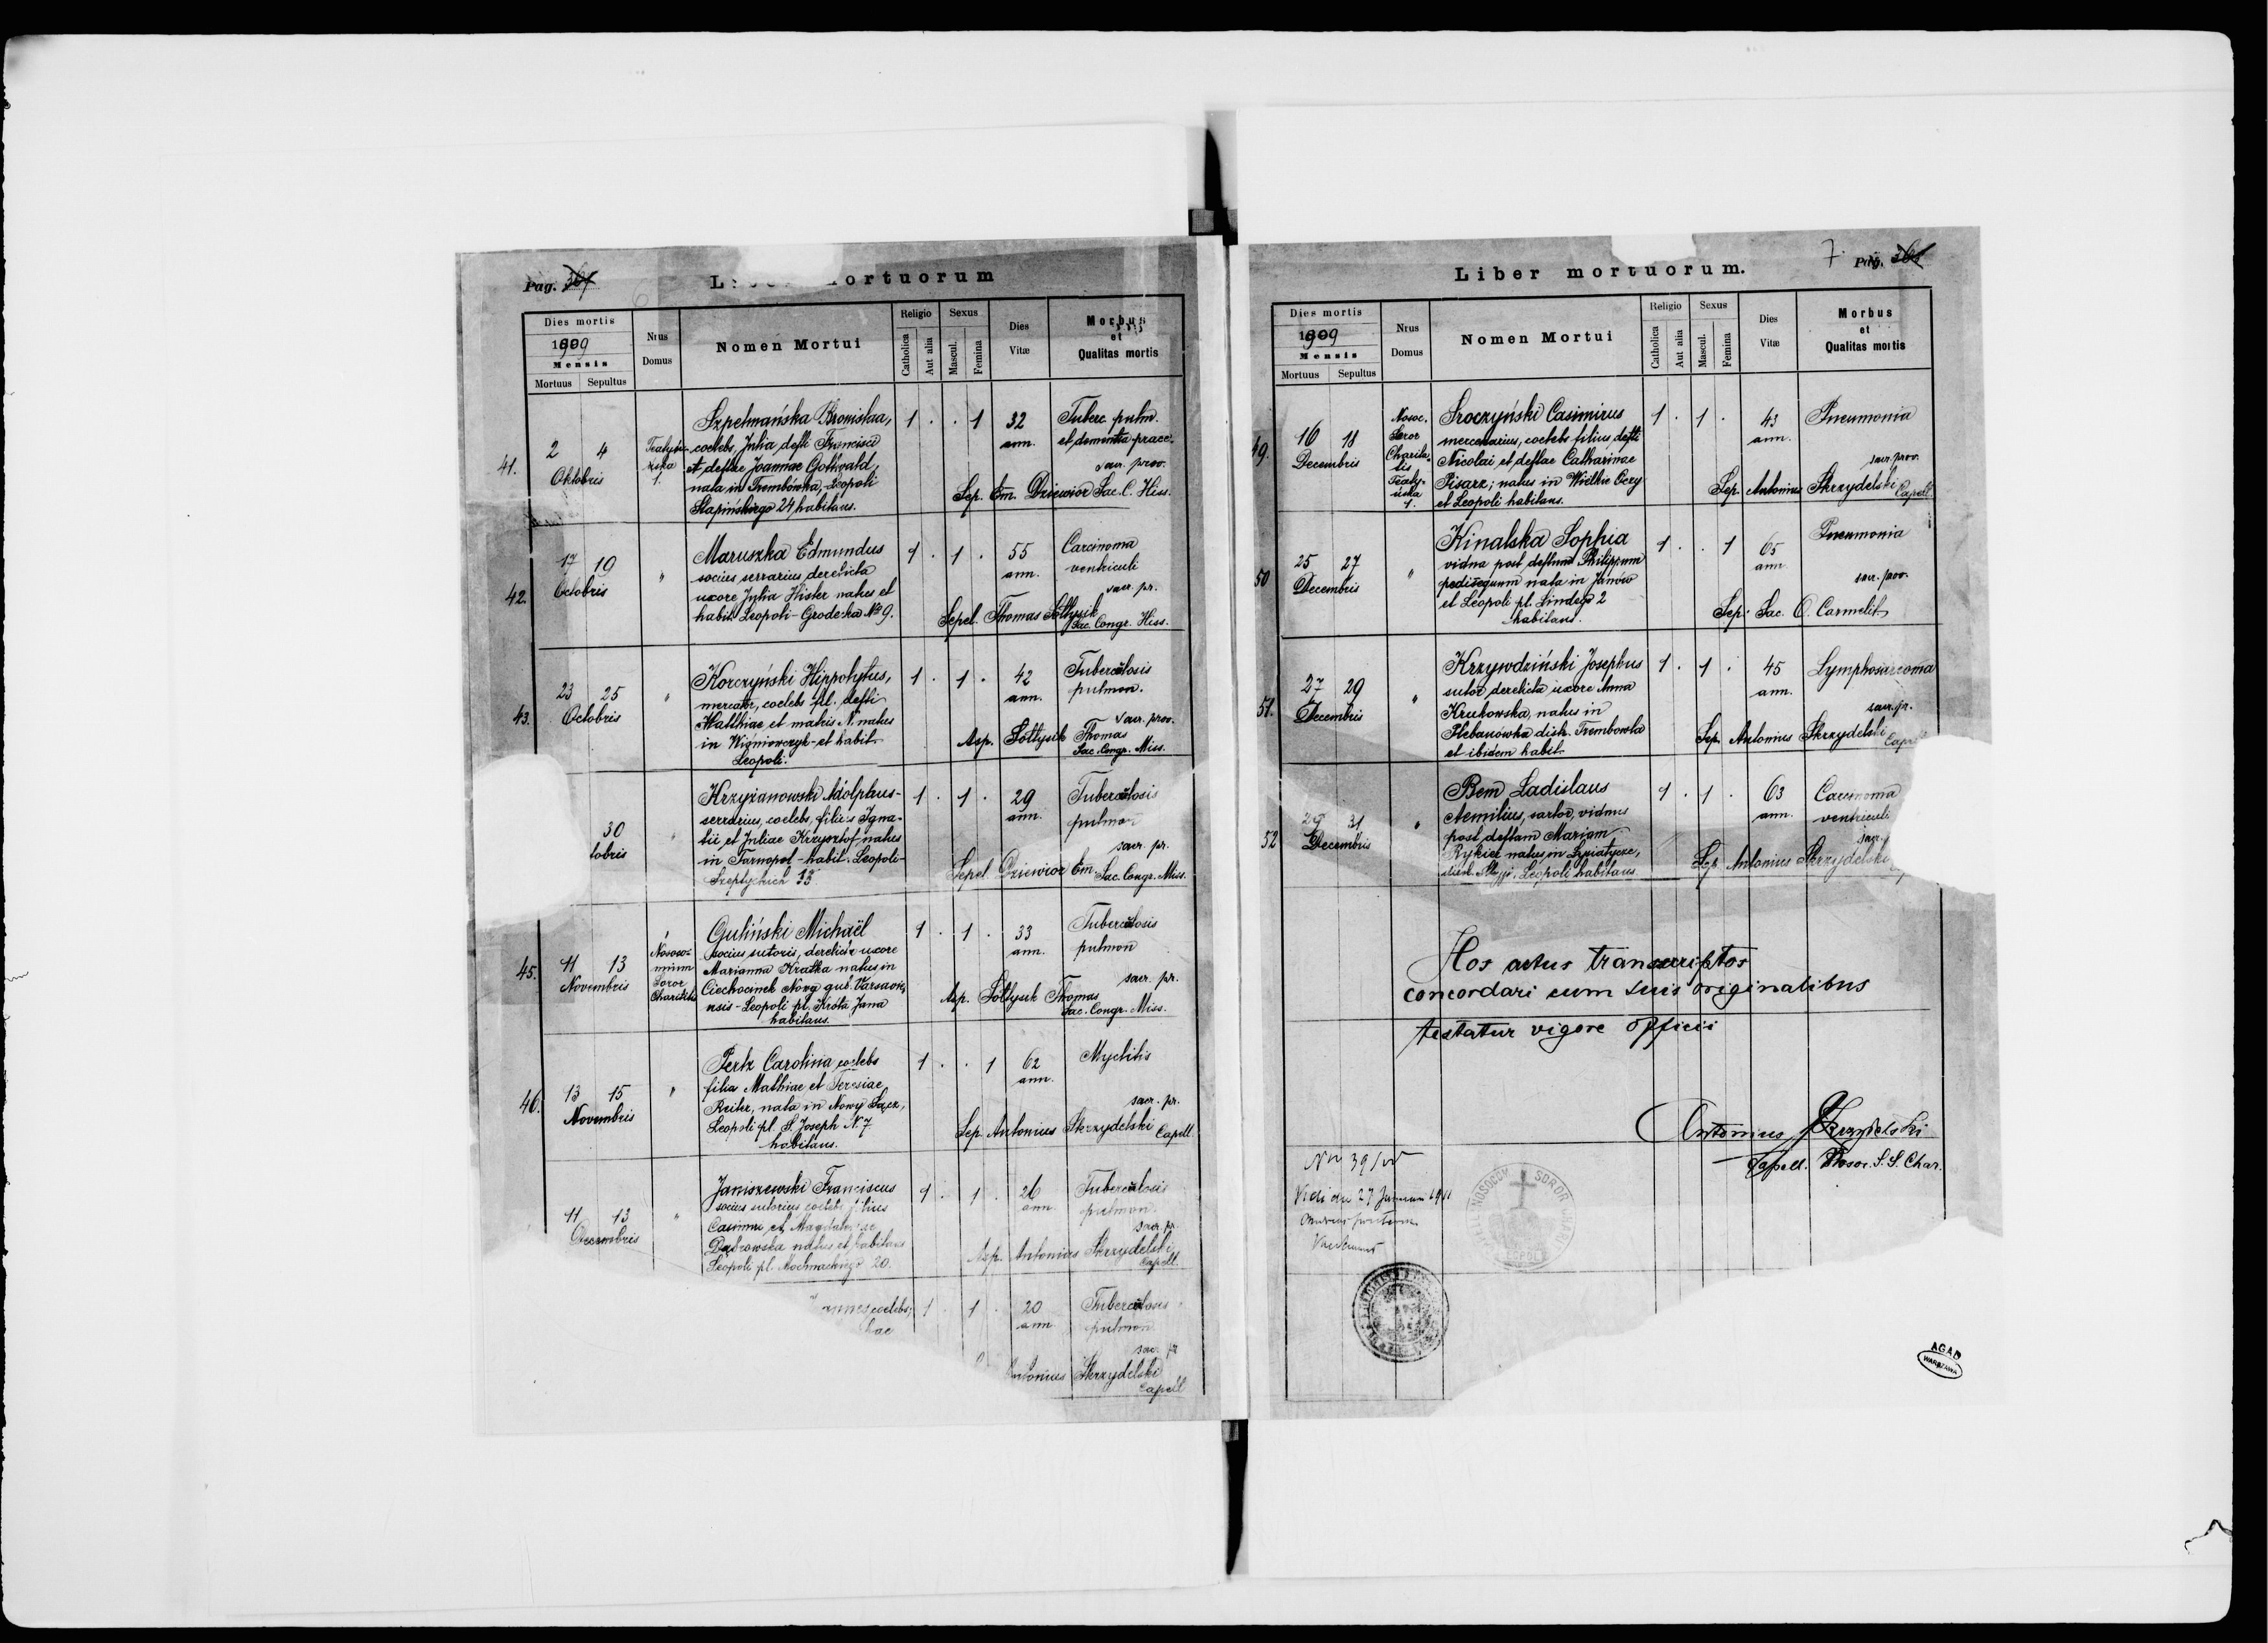 Pag. 367
Liber mortuorum
Dies mortis
1909
Mensis
Mortuus Sepultus
Nrus
Domus
Nomen Mortui
Religio
Catholica
Aut alia
Sexus
Mascul.
Femina
Dies
Vitæ
Morbus
et
Qualitas mortis
41.
2 4
Oktobris
1.
Szpetmańska Bronisłaa,
coelebs, Julia defti Francisci
et deftae Joannae Gottwald,
nata in Trembówka, Leopoli
Słapińskiego 24 habitans.
1 . . 1
32
ann.
Tuberc. pulm.
et dementia praec.
sacr. prov.
Sep. Em. Dziewior Sac. C. Miss.
42.
17 19
Octobris
"
Maruszka Edmundus
socius serrarius, derelicta
uxore Julia Hister natus et
habit. Leopoli - Grodecka No 9.
1 . 1 .
55
ann.
Carcinoma
ventriculi
sacr. pr.
Sepel. Thomas Sołtysik
Sac. Congr. Miss.
43.
23 25
Octobris
"
Korczyński Hippolytus,
mercator, coelebs fil. defti
Matthiae et matris N. natus
in Wiśniowczyk - et habit.
Leopoli.
1 . 1 .
42
ann.
Tuberculosis
pulmon.
sacr. prov.
Asp. Sołtysik Thomas
Sac. Congr. Miss.
30
tobris
"
Krzyżanowski Adolphus -
serrarius, coelebs, filius Igna-
tii et Juliae Krzysztof natus
in Tarnopol - habit. Leopoli -
Szeptyckich 13
1 . 1 .
29
ann.
Tuberculosis
pulmon
sacr. pr.
Sepel. Dziewior Em. Sac. Congr. Miss.
45.
11 13
Novembris
Nosoco-
mium
Soror
Charitatis
Guliński Michaël
socius sutoris, derelicta uxore
Marianna Kratka natus in
Ciechocinek Nowy gub. Varsavie,
nsis - Leopoli pl. Króla Jana
habitans.
1 . 1 .
33
ann.
Tuberculosis
pulmon
sacr. pr.
Asp. Sołtysik Thomas
Sac. Congr. Miss.
46.
13 15
Novembris
"
Pertz Carolina, coelebs
filia Mathiae et Teresiae
Reiter, nata in Nowy Sącz,
Leopoli pl. S. Joseph N. 7
habitans.
1 . . 1
62
ann.
Myelitis
sacr. pr.
Sep. Antonius Skrzydelski Capell.
11 13
Decembris
"
Janiszewski Franciscus
socius sutorius, coelebs filius
Casimiri et Magdalenae
Dąbrowska natus et habitans
Leopoli pl. Mochnackiego 20.
1 . 1 .
26
ann.
Tuberculosis
pulmon.
sacr. pr.
Asp. Antonius Skrzydelski
Capell.
annes coelebs,
1 . 1 .
20
ann.
Tuberculosis
pulmon
sac. pr
Antonius Skrzydelski
Capell
Liber mortuorum.
7. Pag.
Dies mortis
1909
Mensis
Mortuus Sepultus
Nrus
Domus
Nomen Mortui
Religio
Catholica
Aut alia
Sexus
Mascul.
Femina
Dies
Vitæ
Morbus
et
Qualitas mortis
49.
16 18
Decembris
Nosoc.
Soror
Charita-
tis
Teaty-
ńska
1.
Sroczyński Casimirus
mercenarius, coelebs filius defti
Nicolai et deftae Catharinae
Pisarz; natus in Wielkie Oczy
et Leopoli habitans.
1 . 1 .
43
ann.
Pneumonia
sacr. prov.
Sep. Antonius Skrzydelski Capell
50
25 27
Decembris
"
Kinalska Sophia
vidua post deftum Philippum
pedisequum nata in Janów
et Leopoli pl. Lindego 2
habitans.
1 . . 1
65
ann
Pneumonia
sacr. prov.
Sep. Sac. O. Carmelit.
51.
27 29
Decembris
"
Krzywdziński Josephus
sutor derelicta uxore Anna
Krukowska, natus in
Plebanówka distr. Trembowla
et ibidem habit.
1 . 1 .
45
ann.
Lymphosarcoma
sacr. pr.
Sep. Antonius Skrzydelski Capell
52
29 31
Decembris
"
Bem Ladislaus
Aemilius, sartor, viduus
post deftam Mariam
Rykier natus in Lysiatycze,
distr. Stryj, Leopoli habitans.
1 . 1 .
63
ann.
Carcinoma
ventriculi
sacr.
Sep. Antonius Skrzydelski
Hos actus transscriptos
concordari cum suis originalibus
testatur vigore officii
Antonius Skrzydelski
Capell. Nosoc. S. S. Char.
Vidi die 27 Januarii 1911
NOSOCOM SOROR CHARIT
LEOPOLI
AGAD
WARSZAWA